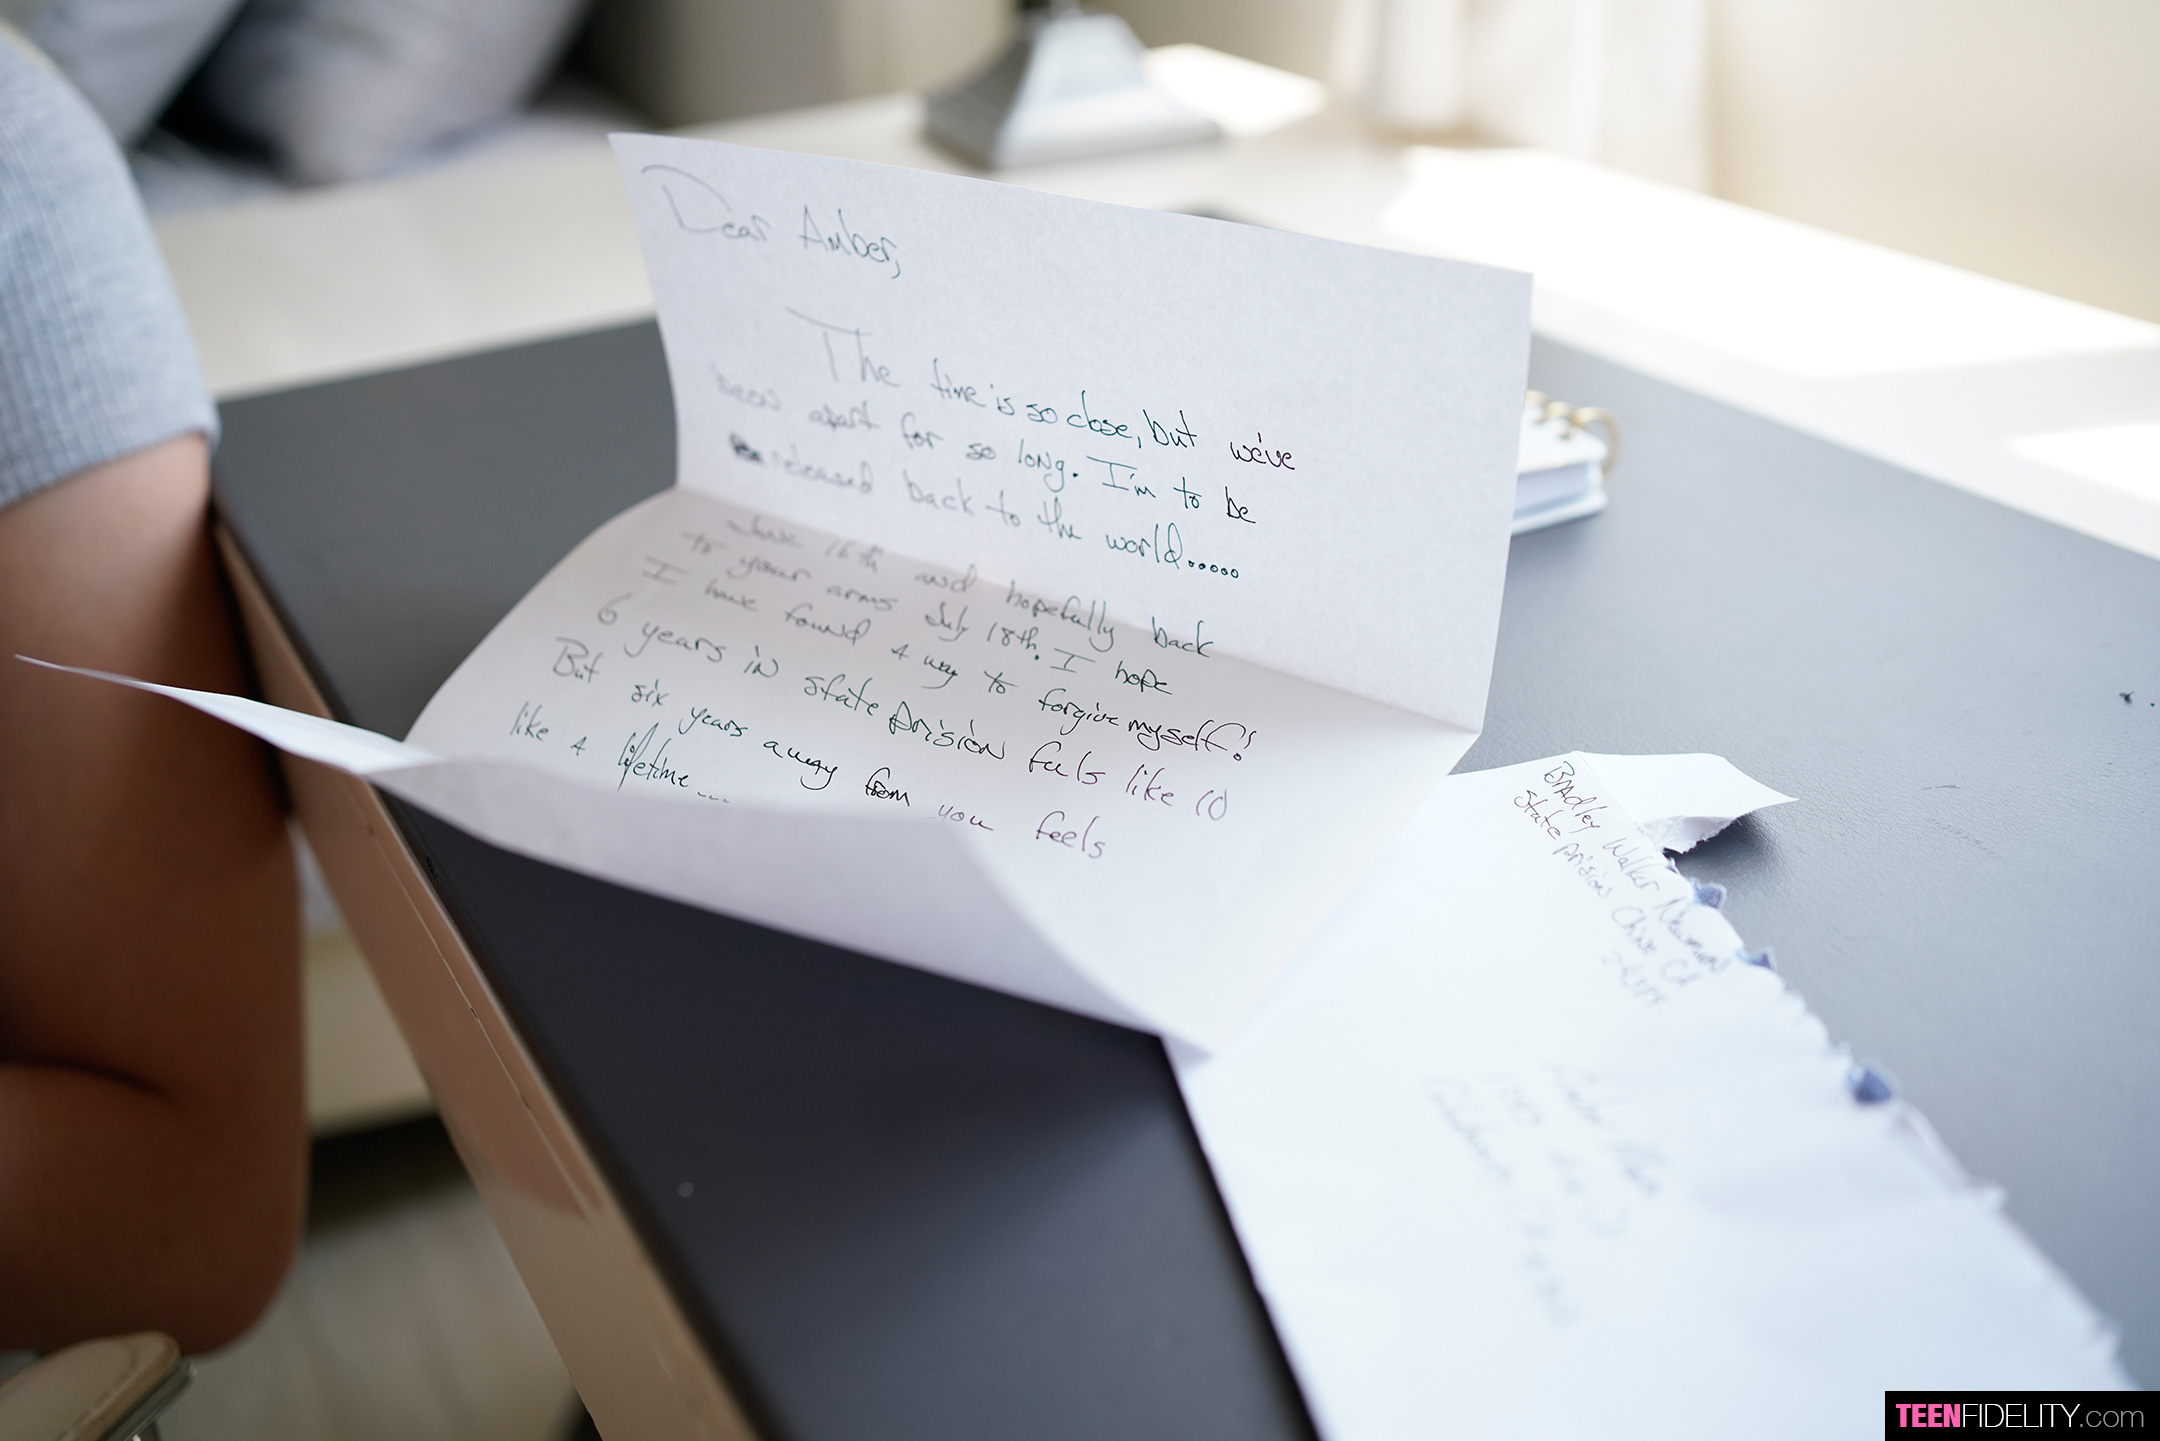 Dear Amber,
The time is so close, but we've
been apart for so long. I'm to be
released back to the world.....
June 16th and hopefully back
to your arms July 18th. I hope
I have found a way to forgive myself!
6 years in state prision feels like 10
But six years away from you feels
like a lifetime...
BRADley Walker Newman
State prision Chino CA
TEENFIDELITY.com